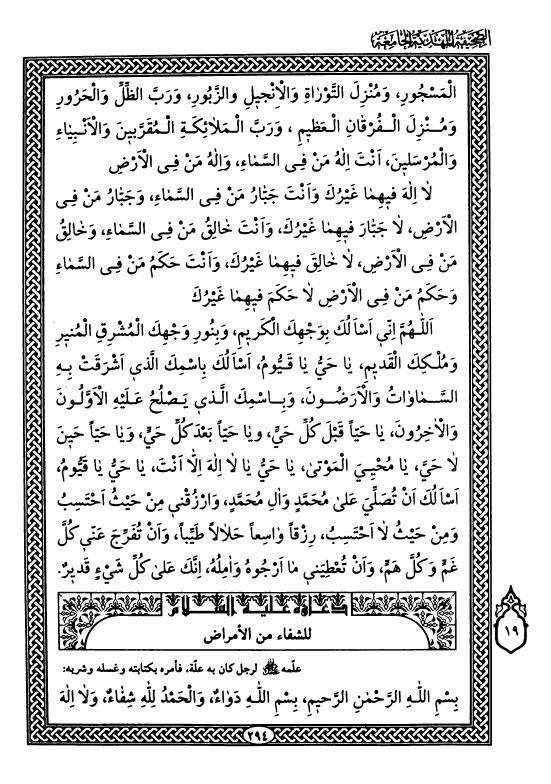 الصحيفة المهدية الجامعة
الْمَسْجُورِ، وَمُنْزِلَ التَّوْرٰاةِ وَالْاِنْجيلِ والزَّبُورِ، وَرَبَّ الظِّلِّ وَالْحَرُورِ
وَمُــنْزِلَ الْـفُرْقٰانِ الْعَظيمِ ، وَرَبَّ الْـمَلاٰئِكَةِ الْمُقَرَّبينَ وَالْاَنْـبِيٰاءِ
وَالْمُرْسَلينَ، اَنْتَ اِلٰهُ مَنْ فِى السَّمٰاءِ، وَاِلٰهُ مَنْ فِى الْاَرْضِ
لاٰ اِلٰهَ فيهِمٰا غَيْرُكَ وَاَنْتَ جَبّٰارُ مَنْ فِى السَّمٰاءِ، وَجَبّٰارُ مَنْ فِى
الْاَرْضِ، لاٰ جَبّٰارَ فيهِمٰا غَيْرُكَ، وَاَنْتَ خٰالِقُ مَنْ فِى السَّمٰاءِ، وَخٰالِقُ
مَنْ فِى الْاَرْضِ، لاٰ خٰالِقَ فيهِمٰا غَيْرُكَ، وَاَنْتَ حَكَمُ مَنْ فِى السَّمٰاءِ
وَحَكَمُ مَنْ فِى الْاَرْضِ لاٰ حَكَمَ فيهِمٰا غَيْرُكَ
اَللّٰهُمَّ اِنّى اَسْاَلُكَ بِوَجْهِكَ الْكَريمِ، وَبِنُورِ وَجْهِكَ الْمُشْرِقِ الْمُنيرِ
وَمُلْكِكَ الْقَديمِ، يٰا حَىُّ يٰا قَـيُّومُ، اَسْاَلُكَ بِاسْمِكَ الَّذى اَشْرَقَتْ بِـهِ
السَّـمٰاوٰاتُ وَالْاَرَضُـونَ، وَبِـاسْمِكَ الَّـذى يَـصْلُحُ عَـلَيْهِ الْاَوَّلُـونَ
وَالْاٰخِرُونَ، يٰا حَيّاً قَبْلَ كُلِّ حَىٍّ، ويٰا حَيّاً بَعْدَ كُلِّ حَىٍّ، وَيٰا حَيّاً حينَ
لاٰ حَىَّ، يٰا مُحْيِىَ الْمَوْتىٰ، يٰا حَىُّ يٰا لاٰ اِلٰهَ اِلّاٰ اَنْتَ، يٰا حَىُّ يٰا قَيُّومُ،
اَسْاَلُكَ اَنْ تُصَلِّىَ عَلىٰ مُحَمَّدٍ وَاٰلِ مُحَمَّدٍ، وَارْزُقْنى مِنْ حَيْثُ اَحْتَسِبُ
وَمِنْ حَيْثُ لاٰ اَحْتَسِبُ، رِزْقاً وٰاسِعاً حَلاٰلاً طَيِّباً، وَاَنْ تُفَرِّجَ عَنّى كُلَّ
غَمٍّ وَكُلَّ هَمٍّ، وَاَنْ تُعْطِيَنى مٰا اَرْجُوهُ وَاٰمِلُهُ، اِنَّكَ عَلىٰ كُلِّ شَىْءٍ قَديرٌ.
دعاؤه عليه السلام
للشفاء من الأمراض
١٩
علّمه ﷺ لرجل كان به علّة، فأمره بكتابته وغسله وشربه:
بِسْمِ اللّٰهِ الرَّحْمٰنِ الرَّحيمِ، بِسْمِ اللّٰهِ دَوٰاءٌ، وَالْحَمْدُ لِلّٰهِ شِفٰاءٌ، وَلاٰ اِلٰهَ
٢٩٤